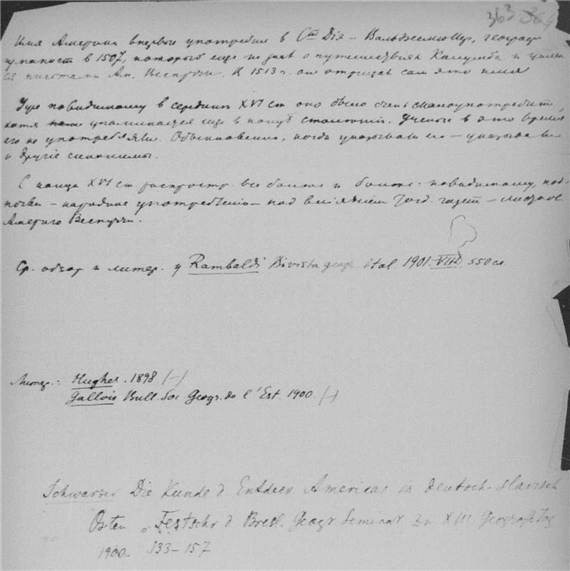 363 364
Имя Америка впервые употребил в St Dié – Вальдземюллер, географ
гуманист в 1507, который еще не знал о путешествиях Колумба и
писания Ам. Веспуччи. К 1513 г. он отрицал сам это имя
Уже повидимому в середине XVI ст оно было очень малоупотребит.,
хотя упоминается еще в начале столетия. Ученые в это время
его не употребляли. Обыкновенно, когда указывали его – указыва
и другие синонимы.
С конца XVI ст распростр. все более и более – повидимому,
– народное употребление – под влиянием
Америго Веспуччи.
Ср. обзор и литер. у Rambaldi Rivista geogr. ital. 1901. VIII. 550 сл
Литер.: Hughes. 1898 (–)
Gallois Bull. Soc Geogr. de l'Est. 1900 (–)
Die Kunde d Entdeck Americas in deutsch-slavisch
Osten „ Festschr d Bresl. Geogr Seminar zu XIII Geograph Tag
1900. 133–157